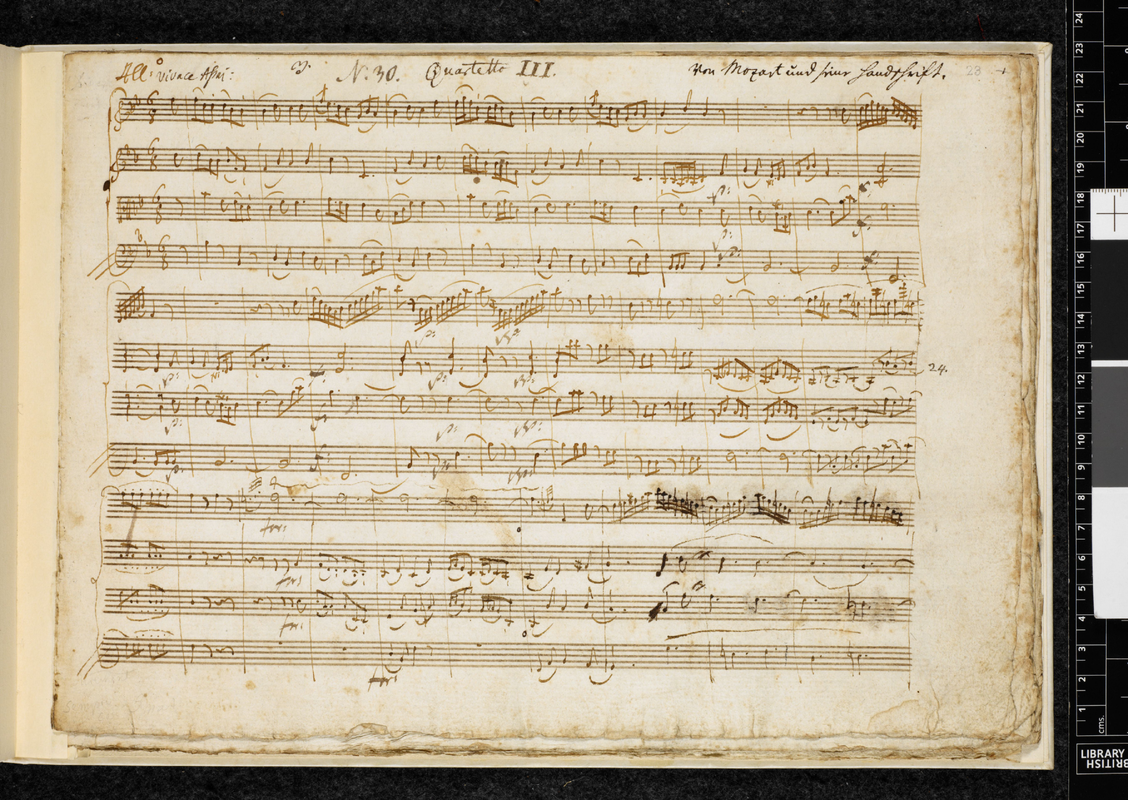 Allo: vivace assai: 3. N. 30. Quartetto III. Von Mozart und seiner Handschrift. 23
p:
p:
24.
p:
p:
p:
p:
p:
p:
for:
for:
for:
for:
24
23
22
21
20
19
18
17
16
15
14
13
12
11
10
9
8
7
6
5
4
3
2
1
cms.
LIBRARY
BRITISH